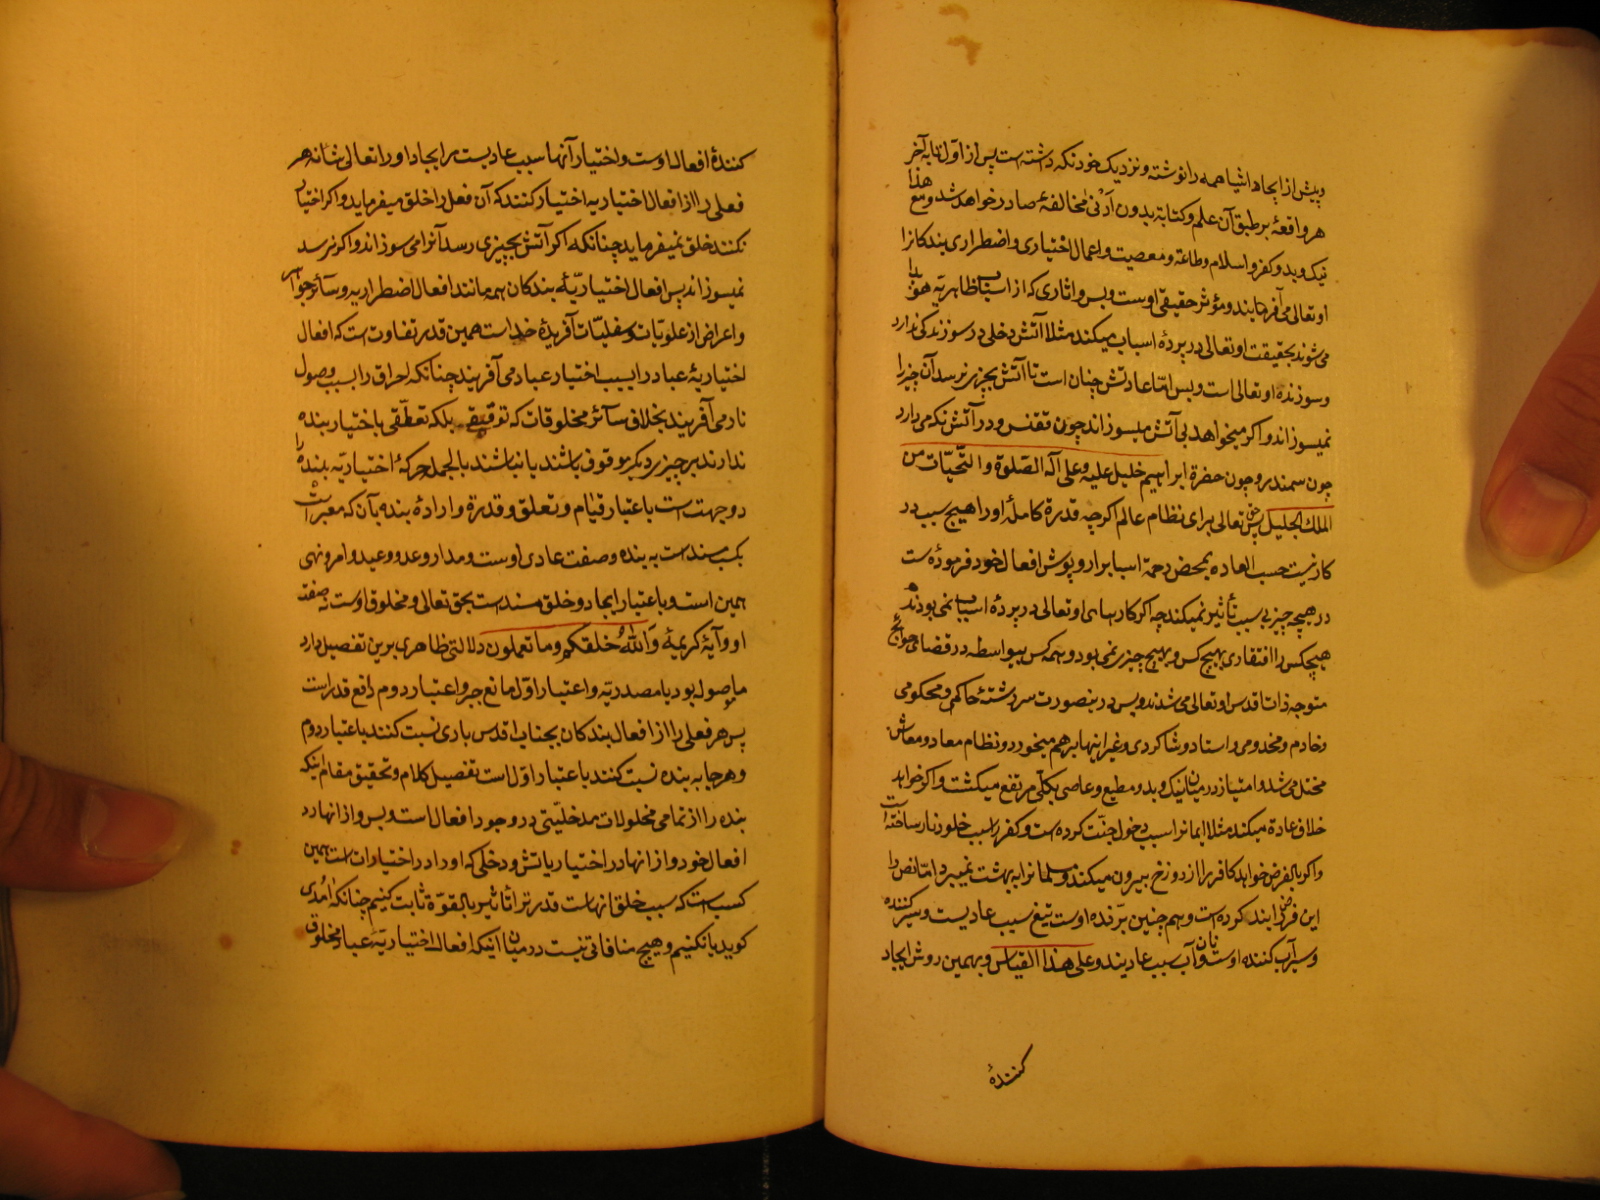 و پیش از ایجاد اشیا همه را نوشته و نزدیک خود نکه داشته است پس از اول تا به آخر
هر واقعهٔ بر طبق آن علم و کتابة بدون ادنی مخالفهٔ صادر خواهد شد و مع هذا
نیک و بد و کفر و اسلام و طاعة و معصیت و اعمال اختیاری و اضطراری بندکانرا
او تعالی می آفریند و مؤثر حقیقی اوست و بس و اثاری که از اسباب ظاهریه هویدا
می شوند بحقیقت او تعالی در پردهٔ اسباب میکند مثلا آتش دخلی در سوزندکی ندارد
و سوزنده او تعالی است و بس امّا عادتش چنان است تا آتش بچیزی نرسد آن چیز را
نمیسوزاند و اکر میخواهد بی آتش میسوزاند چون ققنس و در آتش نکه می دارد
چون سمندر و چون حضرة ابراهیم خلیل علیه و علی آله الصّلوة و التّحیّات من
الملك الجلیل پس حق تعالی برای نظام عالم اکرچه قدرة کاملهٔ او را هیچ سبب در
کار نیست حسب العاده بمحض رحمة اسبابرا روپوش افعال خود فرموده است
در هیچ چیز بی سبب تأثیر نمیکند چه اکر کارهای او تعالی در پردهٔ اسباب نمی بودند
هیچکس را افتقاری بهیچ کس و بهیچ چیز نمی بود و همه کس بیواسطه در قضای حوائج
متوجه ذات اقدس او تعالی می شدند و پس درینصورت سررشتهٔ حاکمی و محکومی
و خادم و مخدومی و استاد و شاکردی و غیر اینها برهم میخورد و نظام معاد و معاش
مختل می شد و امتیاز در میان نیک و بد و مطیع و عاصی بکلّی مرتفع میکشت و اکر خواهد
خلاف عادة میکند مثلا ایمانرا سبب دخول جنّت کرده است و کفر را سبب خلود نار ساخته است
و اکر بالفرض خواهد کافر را از دوزخ بیرون میکند و مسلمانرا بهشت نمیبرد امّا نص را
این فرض ابند کرده است و هم چنین برّنده اوست تیغ سبب عادیست و سیر کننده
و سیرآب کننده اوست نان و آب سبب عادیند و علی هذا القیاس و بهمین روش ایجاد
کنندهٔ
کنندهٔ افعال اوست و اختیار آنها سبب عادیست مر ایجاد او را تعالی شانه هر
فعلی را از افعال اختیاریه اختیار کنند که آن فعل را خلق میفرماید و اکر اختیار
نکنند خلق نمیفرماید چنانکه اکر آتش بچیزی رسد آنرا می سوزاند و اکر نرسد
نمیسوزاند پس افعال اختیاریّهٔ بندکان همه مانند افعال اضطراریه و سائر جواهر
و اعراض از علویّات و سفلیّات آفریدهٔ خداست همین قدر تفاوت است که افعال
اختیاریهٔ عباد را بسبب اختیار عباد می آفریند چنانکه احراق را بسبب وصول
نار می آفریند بخلاف سائر مخلوقات که توقفی بلکه تعلّقی باختیار بنده
ندارند بر چیز دیکر موقوف باشند یا نباشند بالجمله حرکهٔ اختیاریّه بنده را
دو جهت است باعتبار قیام و تعلق و قدرة و ارادهٔ بنده بآن که معبر است
بکسب مسند است به بنده و صفت عادی اوست و مدار وعد و وعید و امر و نهی
همین است و باعتبار ایجاد و خلق مسند است بحق تعالی و مخلوق اوست نه صفة
او و آیهٔ کریمهٔ وَاللهُ خلقکم وما تعملون دلالتی ظاهری برین تفصیل دارد
ما موصوله بود یا مصدریّه و اعتبار اوّل مانع جبر و اعتبار دوم دافع قدر است
پس هر فعلی را از افعال بندکان بجناب اقدس باری نسبت کنند باعتبار دوم
و هر جا به بنده نسبت کنند باعتبار اوّل است تفصیل کلام و تحقیق مقام اینکه
بنده را از تمامی مخلوقات مدخلیّتی در وجود افعال است و بس و از انها در
افعال خود و از انها در اختیاریاتش و دخلی که او را در اختیاریات است همین
کسب است که سبب خلق انهاست قدرتِ را تاثیر بالقوّة ثابت کنیم چنانکه آمُدی
کوید یا نکنیم و هیچ منافاتی نیست در میان اینکه افعال اختیاریّه عباد مخلوق